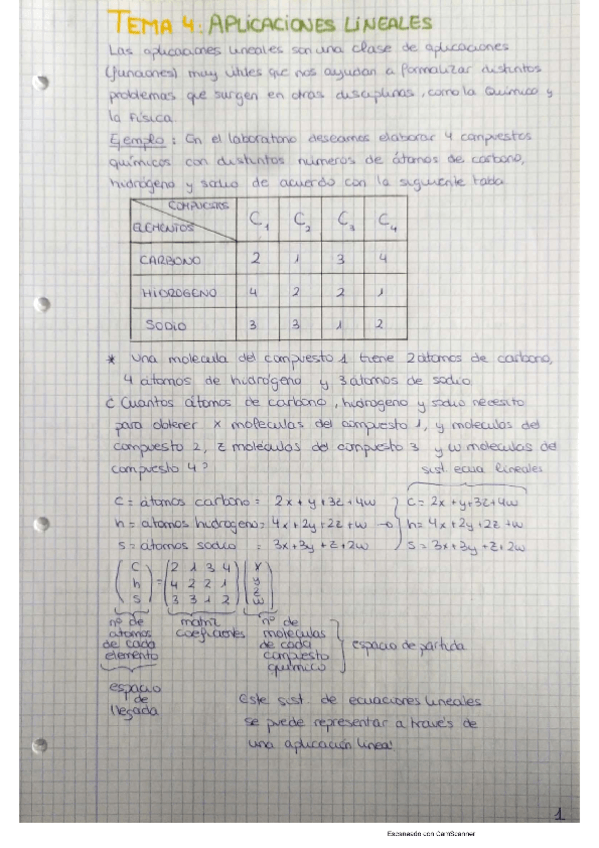 TEMA 4: APLICACIONES LINEALES
Las aplicaciones lineales son una clase de aplicaciones
(funciones) muy útiles que nos ayudan a formalizar distintos
problemas que surgen en otras disciplinas, como la Química y
la Física.
Ejemplo: En el laboratorio deseamos elaborar 4 compuestos
químicos con distintos números de átomos de carbono,
hidrógeno y sodio de acuerdo con la siguiente tabla
COMPUESTOS
ELEMENTOS C1 C2 C3 C4
CARBONO 2 1 3 4
HIDROGENO 4 2 2 1
SODIO 3 3 1 2
* Una molecula del compuesto 1 tiene 2 átomos de carbono,
4 átomos de hidrógeno y 3 átomos de sodio
¿Cuantos átomos de carbono, hidrogeno y sodio necesito
para obtener x moleculas del compuesto 1, y moleculas del
compuesto 2, z moleculas del compuesto 3 y w moleculas del
compuesto 4? sist. ecua lineales
c = átomos carbono = 2x + y + 3z + 4w c = 2x + y + 3z + 4w
h = átomos hidrogeno = 4x + 2y + 2z + w → h = 4x + 2y + 2z + w
s = átomos sodio : 3x + 3y + z + 2w s = 3x + 3y + z + 2w
(c) = (2 1 3 4) (x)
(h) (4 2 2 1) (y)
(s) (3 3 1 2) (z)
(w)
nº de átomos de cada elemento
matriz coeficientes
nº de moleculas de cada compuesto químico
espacio de partida
espacio de llegada
Este sist. de ecuaciones lineales
se puede representar a través de
una aplicación lineal
1
Escaneado con CamScanner